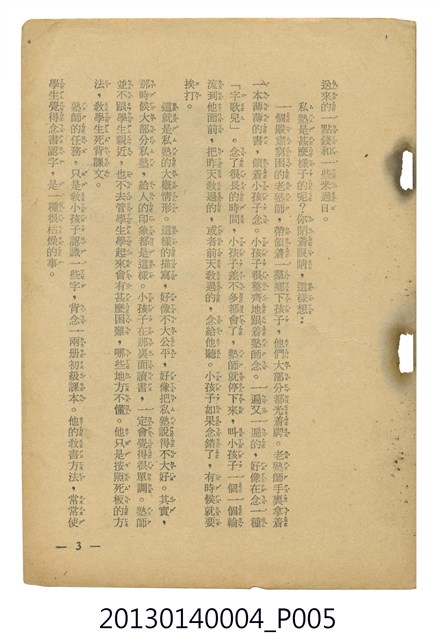 送來的一點錢和一些米過日。
私塾是甚麼樣子的呢？你閉着眼睛，這樣想：
一個嚴肅窮困的老塾師，帶領着一羣鄉下孩子，他們大部分都光着脚。老塾師手裏拿着
一本薄薄的書，領着小孩子念。小孩子很整齊地跟着塾師念。一遍又一遍的，好像在念一種
「字歌兒」。念了很長的時間，小孩子差不多都會了，塾師就停下來，叫小孩子一個一個輪
流到他面前，把昨天教過的，或者前天教過的，念給他聽。小孩子如果念錯了，有時候就要
挨打。
這就是私塾的大概情形。這樣的描寫，好像不大公平，好像把私塾說得不大好。其實，
那時候大部分私塾，給人的印象都是這樣。小孩子在那裏面讀書，一定會覺得很單調。塾師
並不跟學生親近，也不去管學生學起來會有甚麼困難，哪些地方不懂。他只是按照死板的方
法，教學生死背課文。
塾師的任務，只是教小孩子認識一些字，背念一兩册初級課本。他的教書方法，常常使
學生覺得念書認字，是一種很枯燥的事。
— 3 —
20130140004_P005